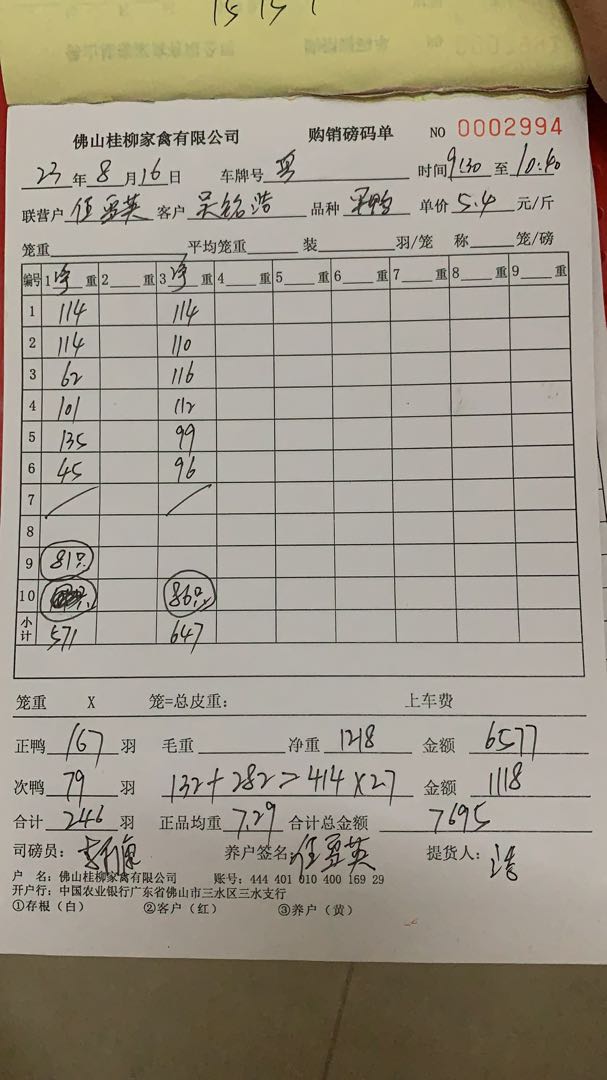 佛山桂柳家禽有限公司 购销磅码单 NO 0002994
23 年 8 月 16 日 车牌号 时间 9:30 至 10:40
联营户 任 英 客户 吴铭浩 品种 鸭 单价 5.4 元/斤
笼重 平均笼重 装 羽/笼 称 笼/磅
编号 1 净 重 2 重 3 净 重 4 重 5 重 6 重 7 重 8 重 9 重
1 114 114
2 114 110
3 62 116
4 101 112
5 135 99
6 45 96
7
8
9 81只
10 86只
小计 571 647
笼重 X 笼=总皮重: 上车费
正鸭 167 羽 毛重 净重 1218 金额 6577
次鸭 79 羽 132+282=414×27 金额 1118
合计 246 羽 正品均重 7.29 合计总金额 7695
司磅员: 李 养户签名: 任 英 提货人: 浩
户 名: 佛山桂柳家禽有限公司 账号: 444 401 010 400 169 29
开户行: 中国农业银行广东省佛山市三水区三水支行
①存根(白) ②客户(红) ③养户(黄)